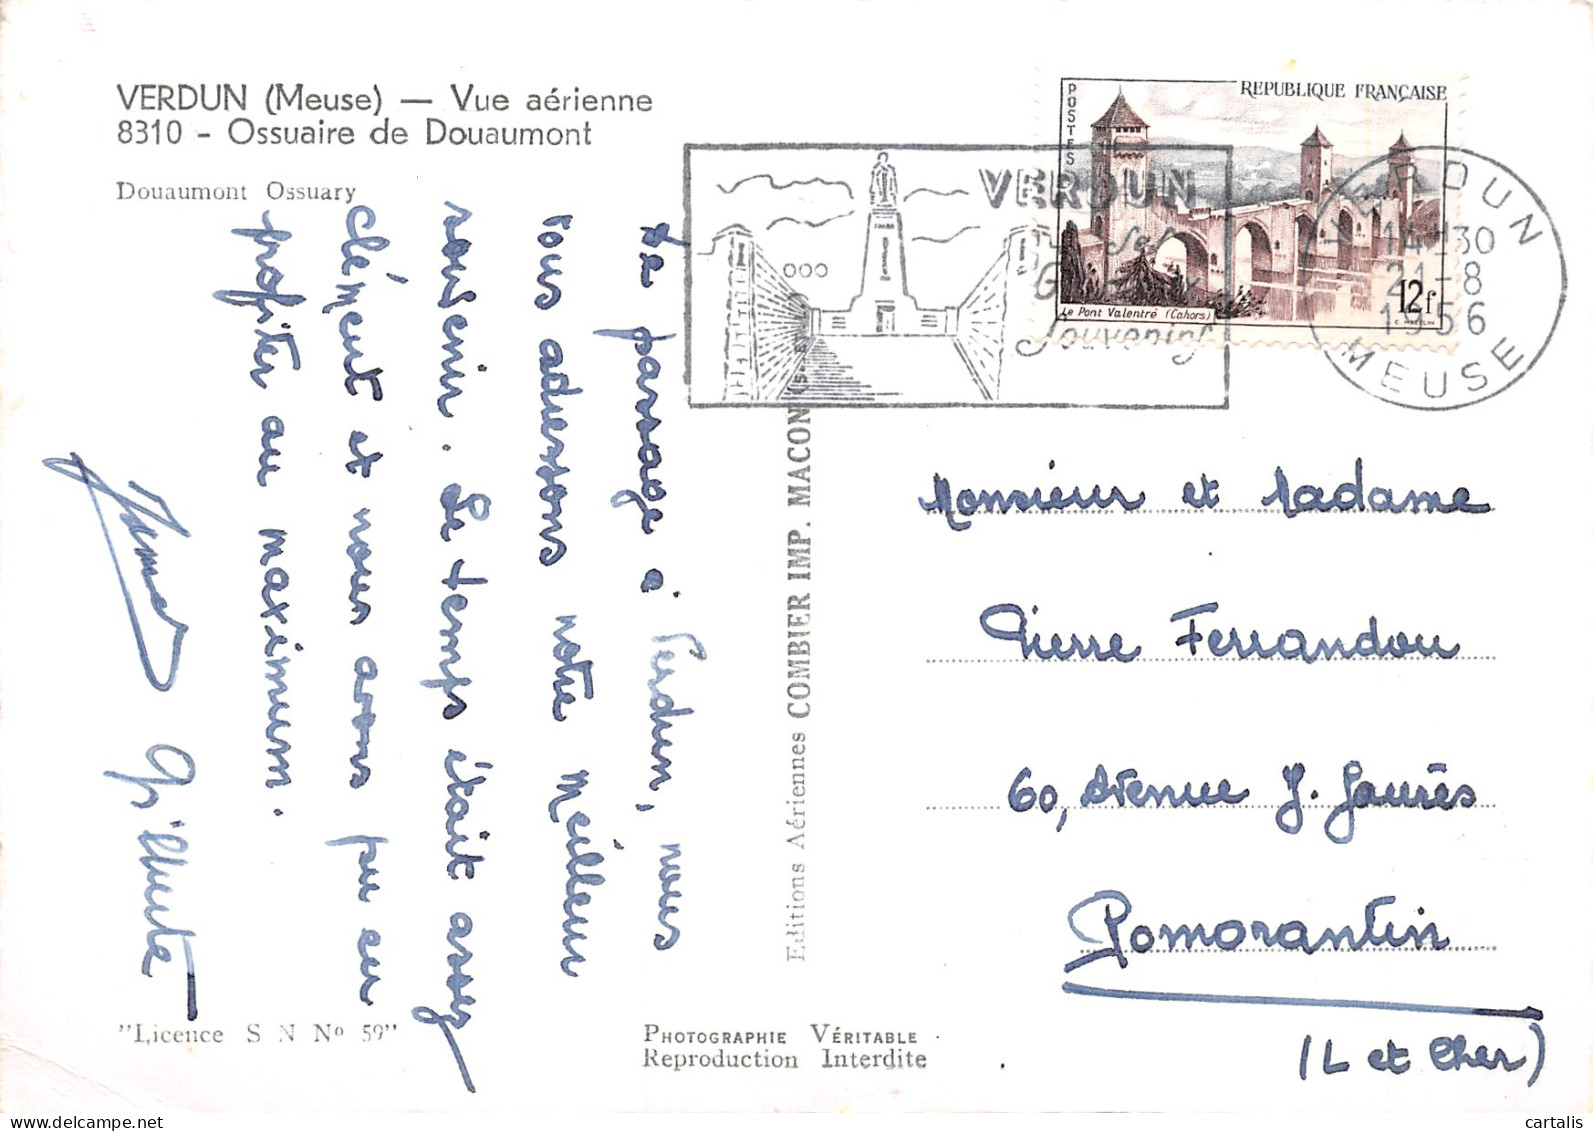 VERDUN (Meuse) — Vue aérienne
8310 - Ossuaire de Douaumont
Douaumont Ossuary
De passage à Verdun, nous
vous adressons notre meilleur
souvenir. Le temps était assez
clément et nous avons pu en
profiter au maximum.
Gilberte
"Licence S N Nº 59"
PHOTOGRAPHIE VÉRITABLE
Reproduction Interdite
Editions Aériennes COMBIER IMP. MACON
VERDUN
Ses
Souvenirs
POSTES
REPUBLIQUE FRANÇAISE
Le Pont Valentré (Cahors)
12f
VERDUN
14H30
21-8
1956
MEUSE
Monsieur et Madame
Pierre Ferrandou
60, Avenue J. Jaurès
Romorantin
(L et Cher)
cartalis